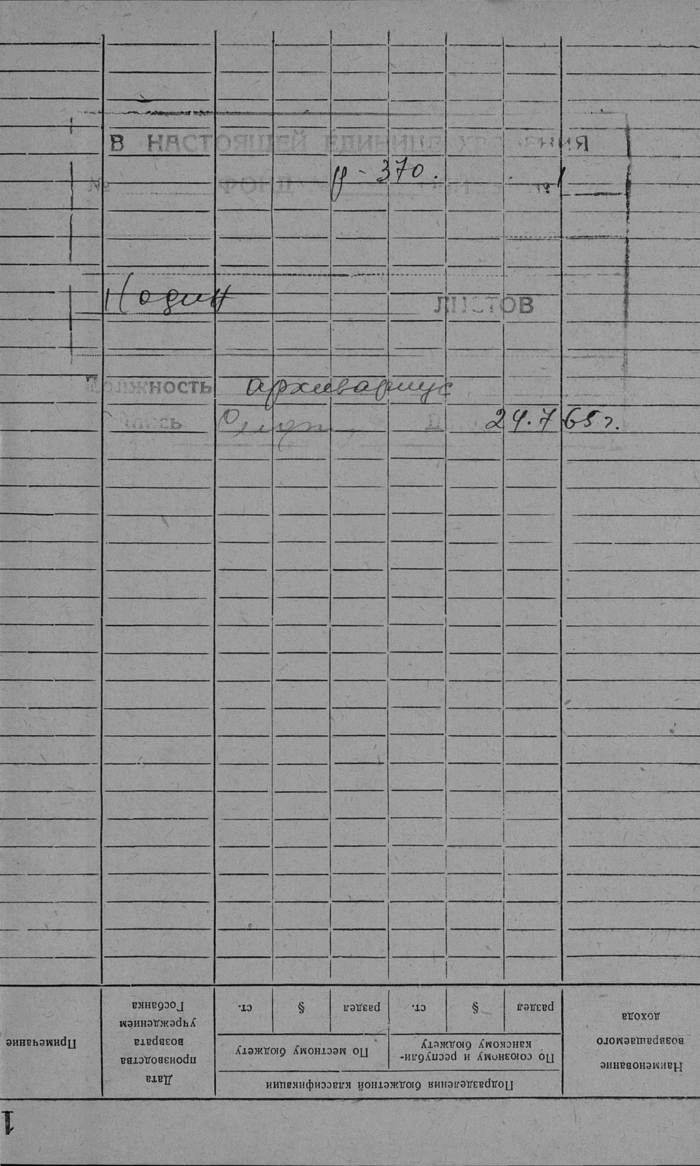 В НАСТОЯЩЕЙ ЕДИНИЦЕ ХРАНЕНИЯ
№ ФОНД р-370. № 1
1 (один ЛИСТОВ
Должность архивариус
24.7 65 г.
Наименование возвращаемого дохода
Подразделения бюджетной классификации
По союзному и республиканскому бюджету
По местному бюджету
раздел § ст. раздел § ст.
Дата производства возврата учреждением Госбанка
Примечание
1